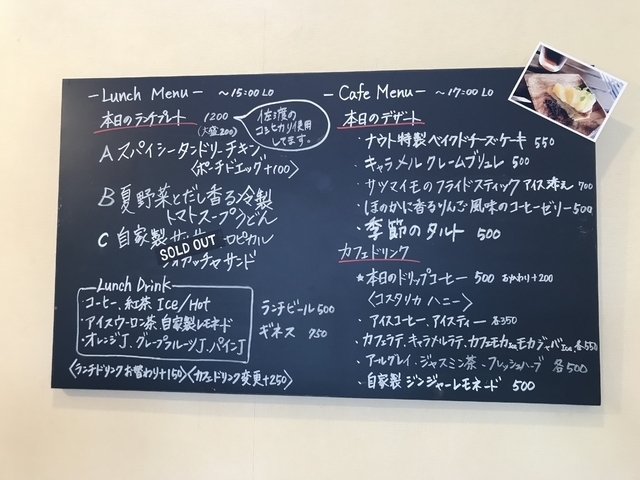 －Lunch Menu－ ～15:00 LO
本日のランチプレート 1200
(大盛200)
佐渡の
コシヒカリ使用
してます。
A スパイシータンドリーチキン
〈ポーチドエッグ+100〉
B 夏野菜とだし香る冷製
トマトスープうどん
C 自家製 ロピカル
SOLD OUT
フォカッチャサンド
Lunch Drink
・コーヒー、紅茶 Ice/Hot
・アイスウーロン茶 自家製レモネード
・オレンジJ、グレープフルーツJ、パインJ
ランチビール 500
ギネス 750
〈ランチドリンクお替わり+150〉〈カフェドリンク変更+250〉
－Cafe Menu－ ～17:00 LO
本日のデザート
・ナウト特製ベイクドチーズケーキ 550
・キャラメルクレームブリュレ 500
・サツマイモのフライドスティック アイス添え 700
・ほのかに香るりんご風味のコーヒーゼリー 500
・季節のタルト 500
カフェドリンク
★本日のドリップコーヒー 500 おかわり+200
〈コスタリカ ハニー〉
・アイスコーヒー、アイスティー 各550
・カフェラテ、キャラメルラテ、カフェモカ Ice モカジャバ Ice 各550
・アールグレイ、ジャスミン茶、フレッシュハーブ 各500
・自家製ジンジャーレモネード 500